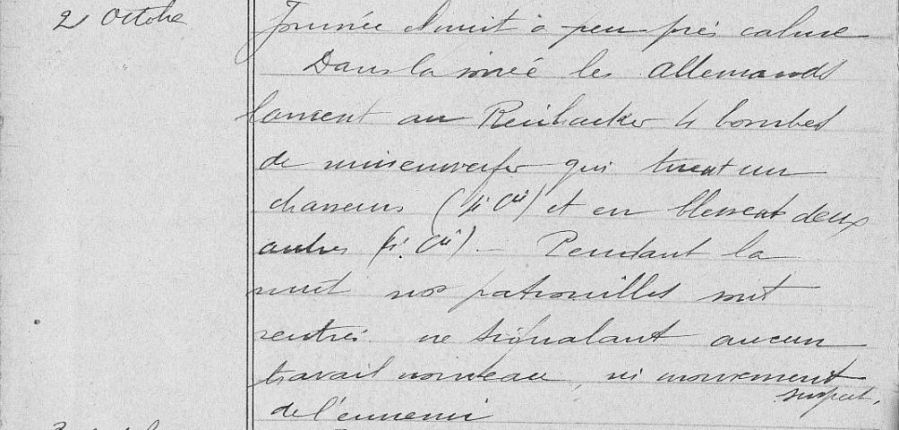 2 Octobre
Journée et nuit à peu près calme
Dans la soirée les Allemands
lancent au Reichacker 4 bombes
de minenwerfer qui tuent un
chasseurs (4e Cie) et en blessent deux
autres (4e Cie). - Pendant la
nuit nos patrouilles sont
rentrés ne signalant aucun
travail nouveau, ni mouvement
suspect,
de l'ennemi